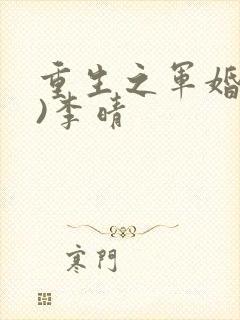 重生之军婚
)李晴
寒門